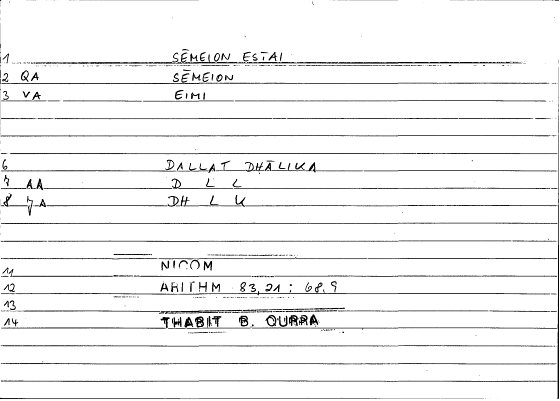 1 SĒMEION ESTAI
2 QA SĒMEION
3 VA EIMI
6 DALLAT DHĀLIKA
7 AA D L L
8 JA DH L K
11 NICOM
12 ARITHM 83,21 : 68,9
13
14 THABIT B. QURRA